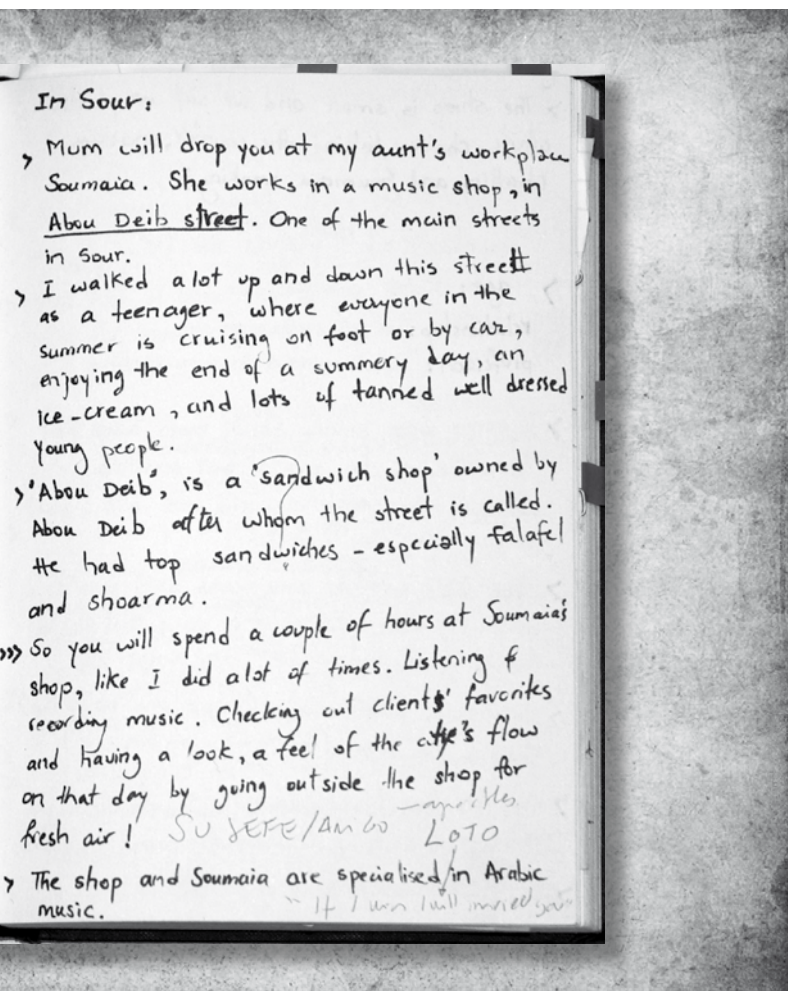 In Sour:
> Mum will drop you at my aunt's workplace
Soumaia. She works in a music shop, in
Abou Deib street. One of the main streets
in Sour.
> I walked a lot up and down this street
as a teenager, where everyone in the
summer is cruising on foot or by car,
enjoying the end of a summery day, an
ice-cream, and lots of tanned well dressed
young people.
> 'Abou Deib', is a 'sandwich shop' owned by
Abou Deib after whom the street is called.
He had top sandwiches - especially falafel
and shoarma.
>>> So you will spend a couple of hours at Soumaia's
shop, like I did a lot of times. Listening &
recording music. Checking out clients' favorites
and having a look, a feel of the city's flow
on that day by going outside the shop for
fresh air! SU JEFE/AMIGO LOTO
> The shop and Soumaia are specialised in Arabic
music. "If I win I will